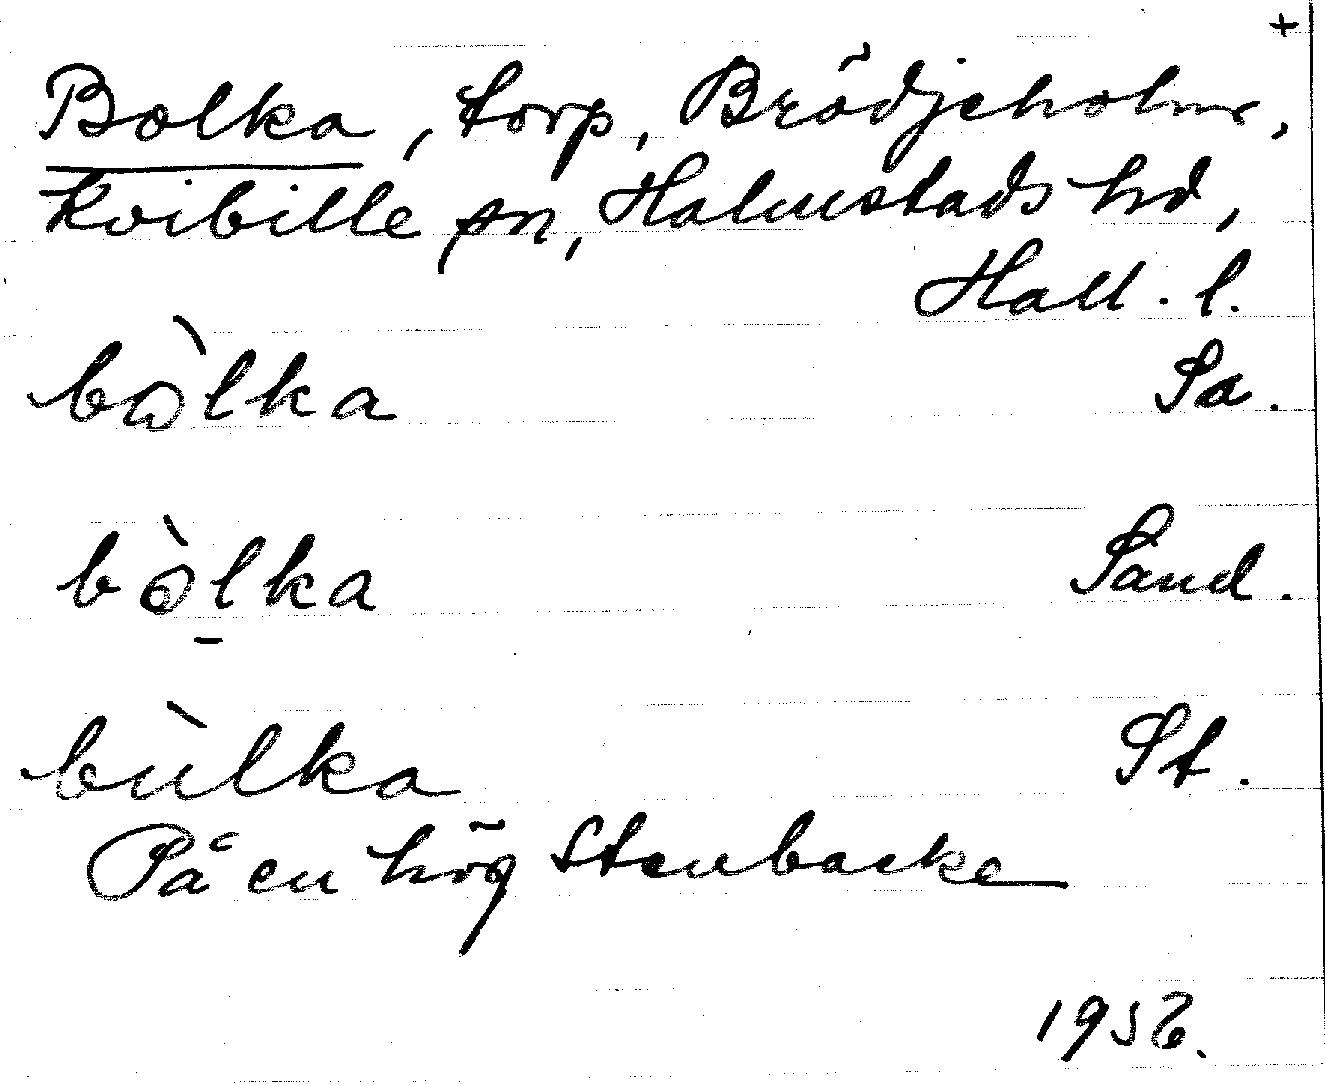 +
Bolka, torp, Brödjeholme,
Kvibille sn, Halmstads hd,
Hall. l.
bòlka Sa.
bòlka Sand.
bùlka St.
På en hög Stenbacke
1956.